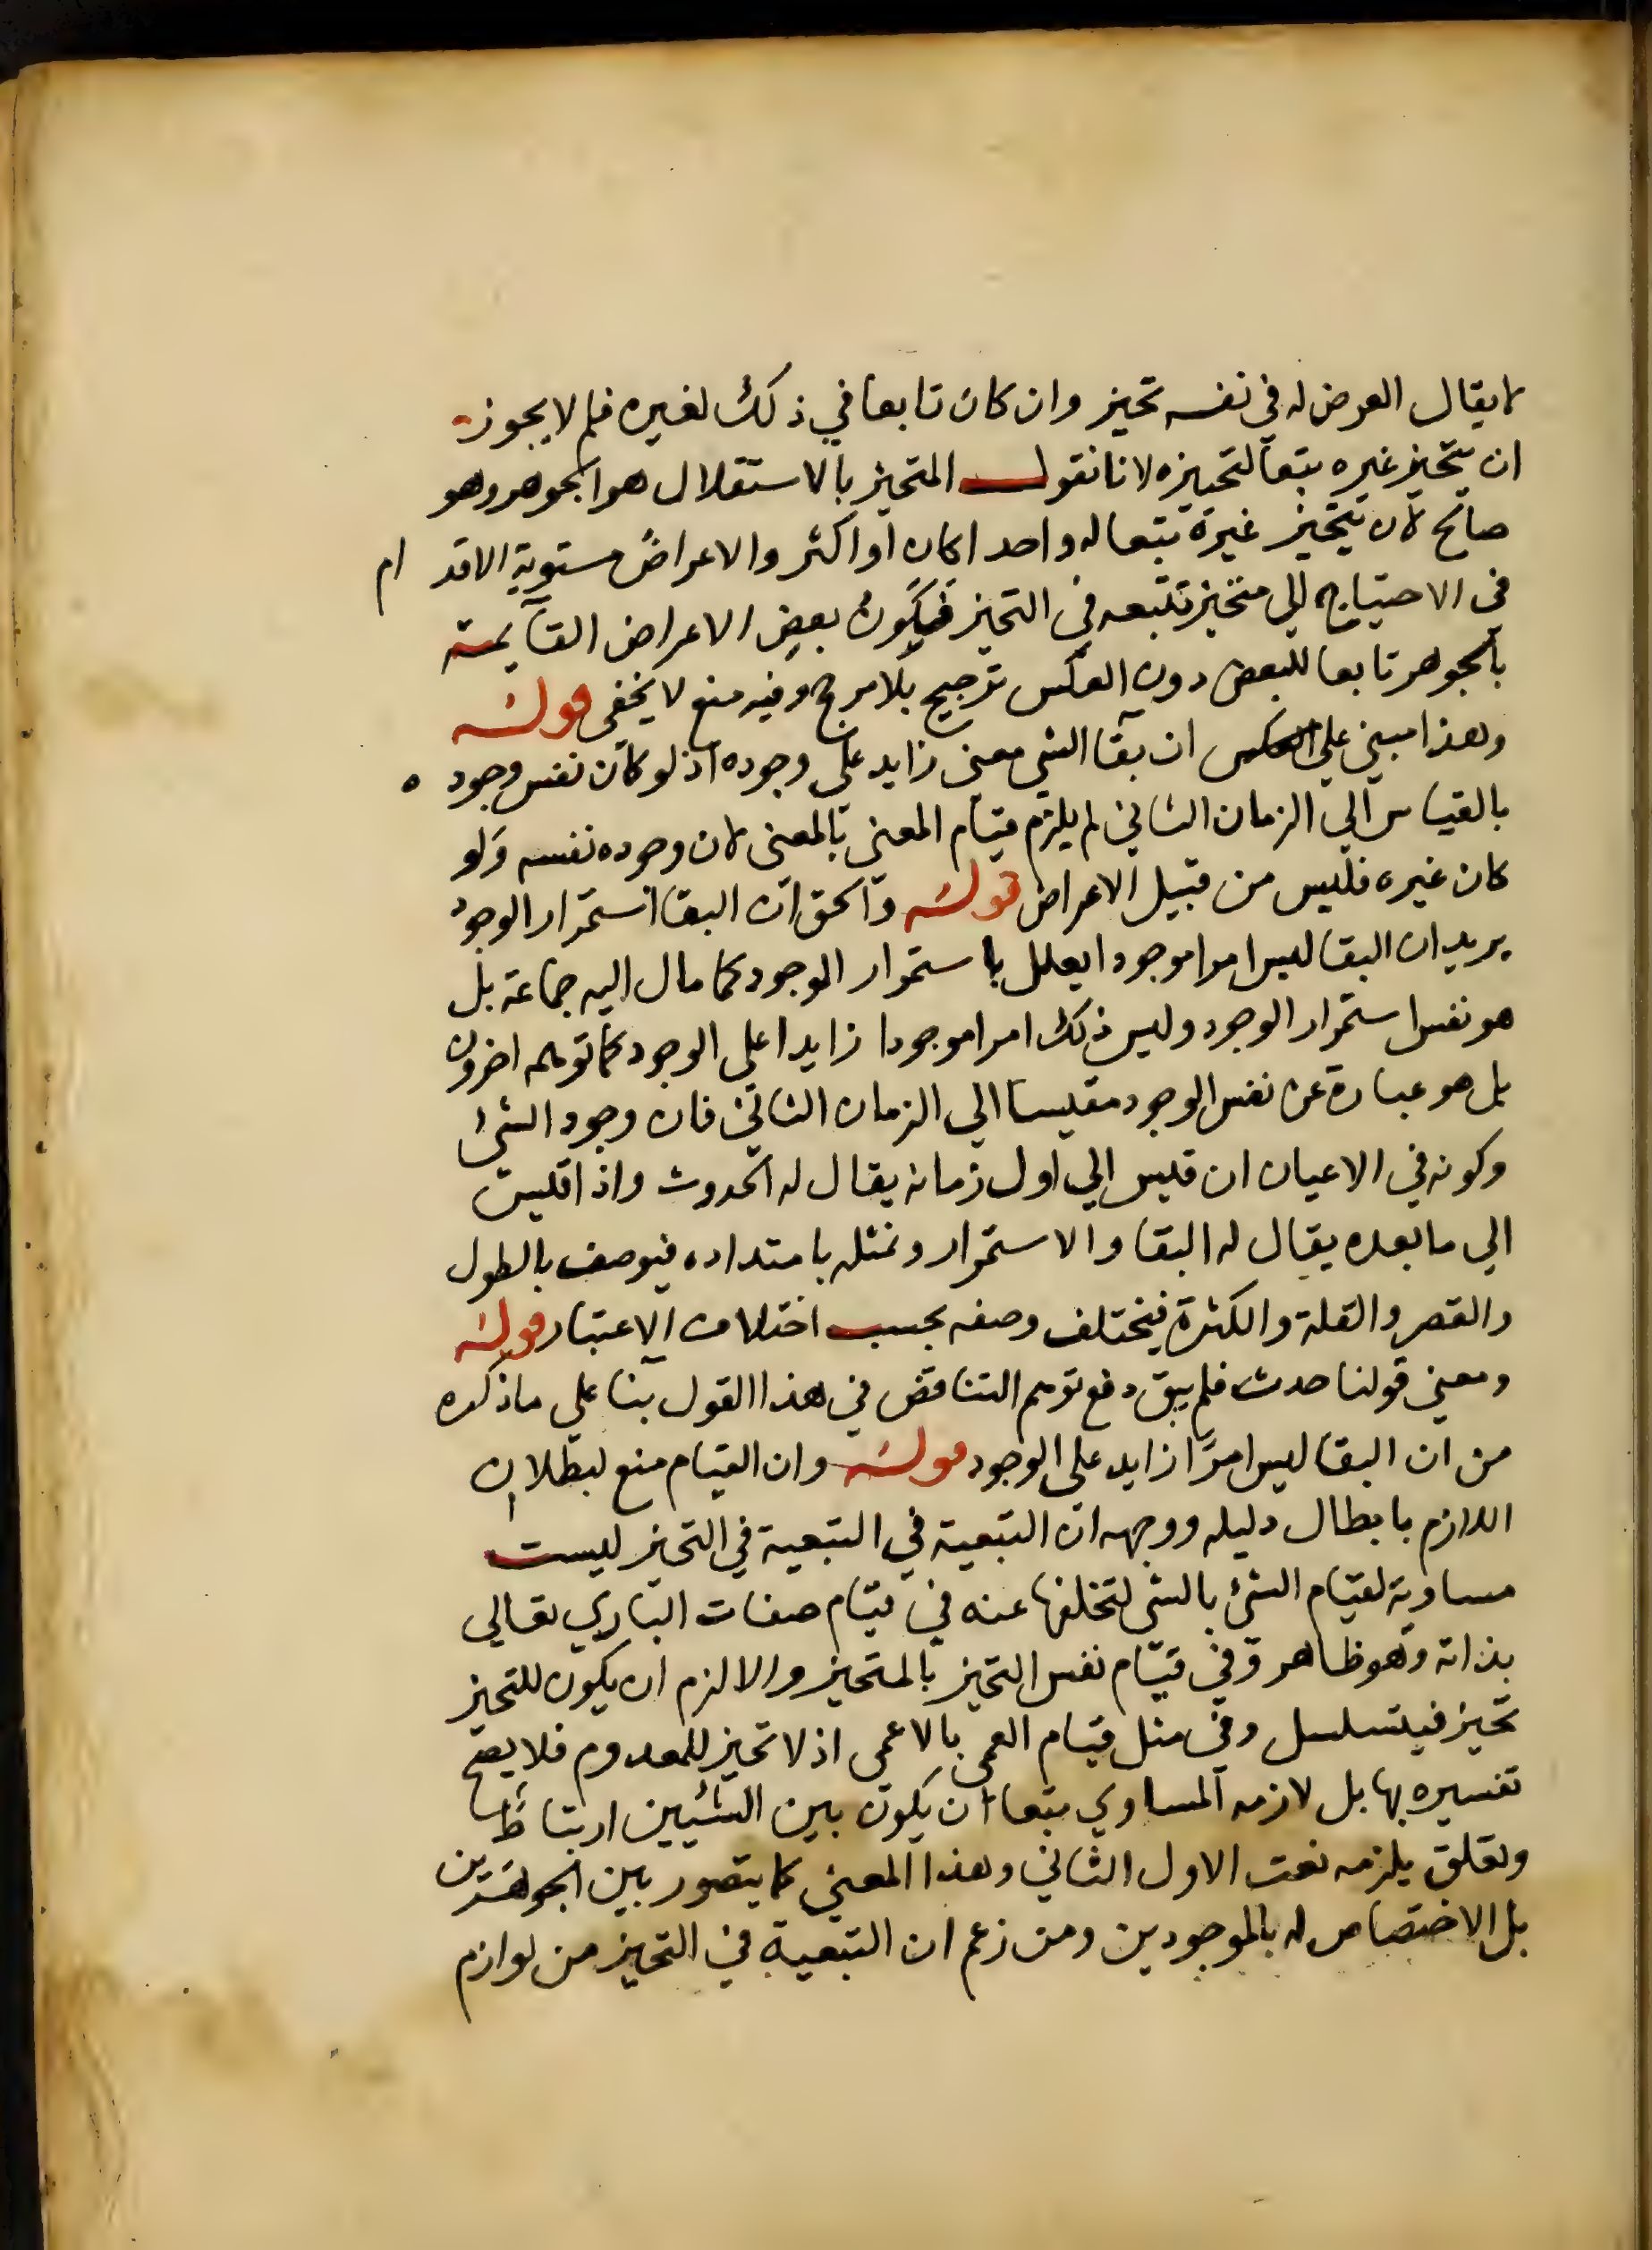 لا يقال العرض له في نفسه تحيز وان كان تابعا في ذلك لغيره فلم لا يجوز
ان يتحيز غيره تبعا لتحيزه لانا نقول المتحيز بالاستقلال هو الجوهر وهو
صالح لان يتحيز غيره تبعا له واحدا كان او اكثر والاعراض مستوية الاقد ام
في الاحتياج الى متحيز تتبعه في التحيز فيكون بعض الاعراض القآيمة
بالجوهر تابعا للبعض دون العكس ترجيح بلا مرجح وفيه منع لا يخفى قوله
وهذا مبني على ان بقا الشي معنى زايد على وجوده اذ لو كان نفس وجود ه
بالقياس الي الزمان الثاني لم يلزم قيام المعني بالمعنى لان وجوده نفسه ولو
كان غيره فليس من قبيل الاعراض قوله والحق ان البقا استمرار الوجود
يريد ان البقا ليس امرا موجودا يعلل باستمرار الوجود كما مال اليه جماعة بل
هو نفس استمرار الوجود وليس ذلك امرا موجودا زايدا على الوجود كما توهمه اخرون
بل هو عبارة عن نفس الوجود مقيسا الي الزمان الثاني فان وجود الشئ
وكونه في الاعيان ان قيس الي اول زمانه يقال له الحدوث واذا قيس
الي ما بعده يقال له البقا والاستمرار ونمثله بامتداده فيوصف بالطول
والقصر والقلة والكثرة فيختلف وصفه بحسب اختلاف الاعتبار قوله
ومعني قولنا حدث فلم يبق دفع توهم التناقض في هذا القول بنا علي ما ذكره
من ان البقا ليس امرًا زايد على الوجود قوله وان القيام منع لبطلان
اللازم بابطال دليله ووجهه ان التبعية في التبعية في التحيز ليست
مساوية لقيام الشئ بالشي لتخلفها عنه في قيام صفات الباري تعالي
بذاته وهو ظاهر وفي قيام نفس التحيز بالمتحيز والا لزم ان يكون للتحيز
تحيز فيتسلسل وفي مثل قيام العمي بالاعمي اذ لا تحيز للمعدوم فلا يصح
تفسيره بها بل لازمه المساوي تبعا ان يكون بين الشيئين ارتباطًا
وتعلق يلزمه نعت الاول الثاني وهذا المعني كما يتصور بين الجوهرين
بل الاختصاص له بالموجودين ومن زعم ان التبعية في التحيز من لوازم